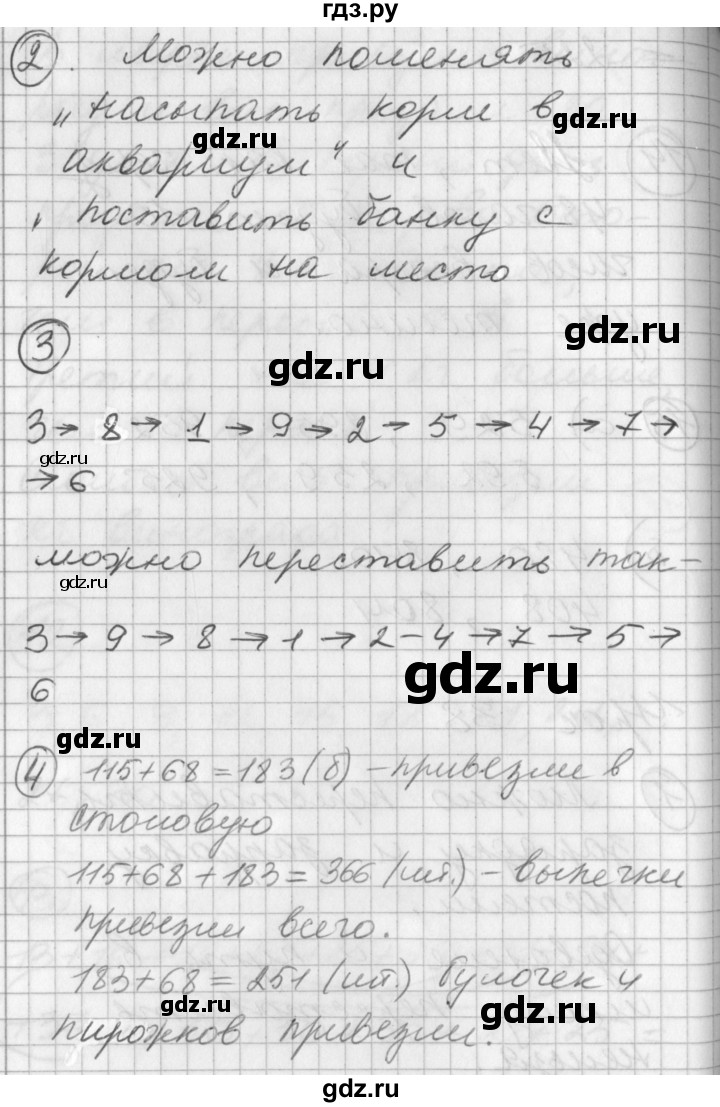 гдз.ру
2. Можно поменять
„насыпать корм в
gdz.ru
gdz.ru
аквариум" и
„поставить банку с
кормом на место
gdz.ru
3
gdz.ru
3 → 8 → 1 → 9 → 2 → 5 → 4 → 7 →
gdz.ru
→ 6
можно переставить так-
gdz.ru
3 → 9 → 8 → 1 → 2 - 4 → 7 → 5 →
gdz.ru
6
gdz.ru
4 115+68=183(б) - привезли в
столовую
115+68+183=366 (шт.) - выпечки
привезли всего.
183+68=251 (шт.) булочек и
gdz.ru
gdz.ru
пирожков привезли.
gdz.ru